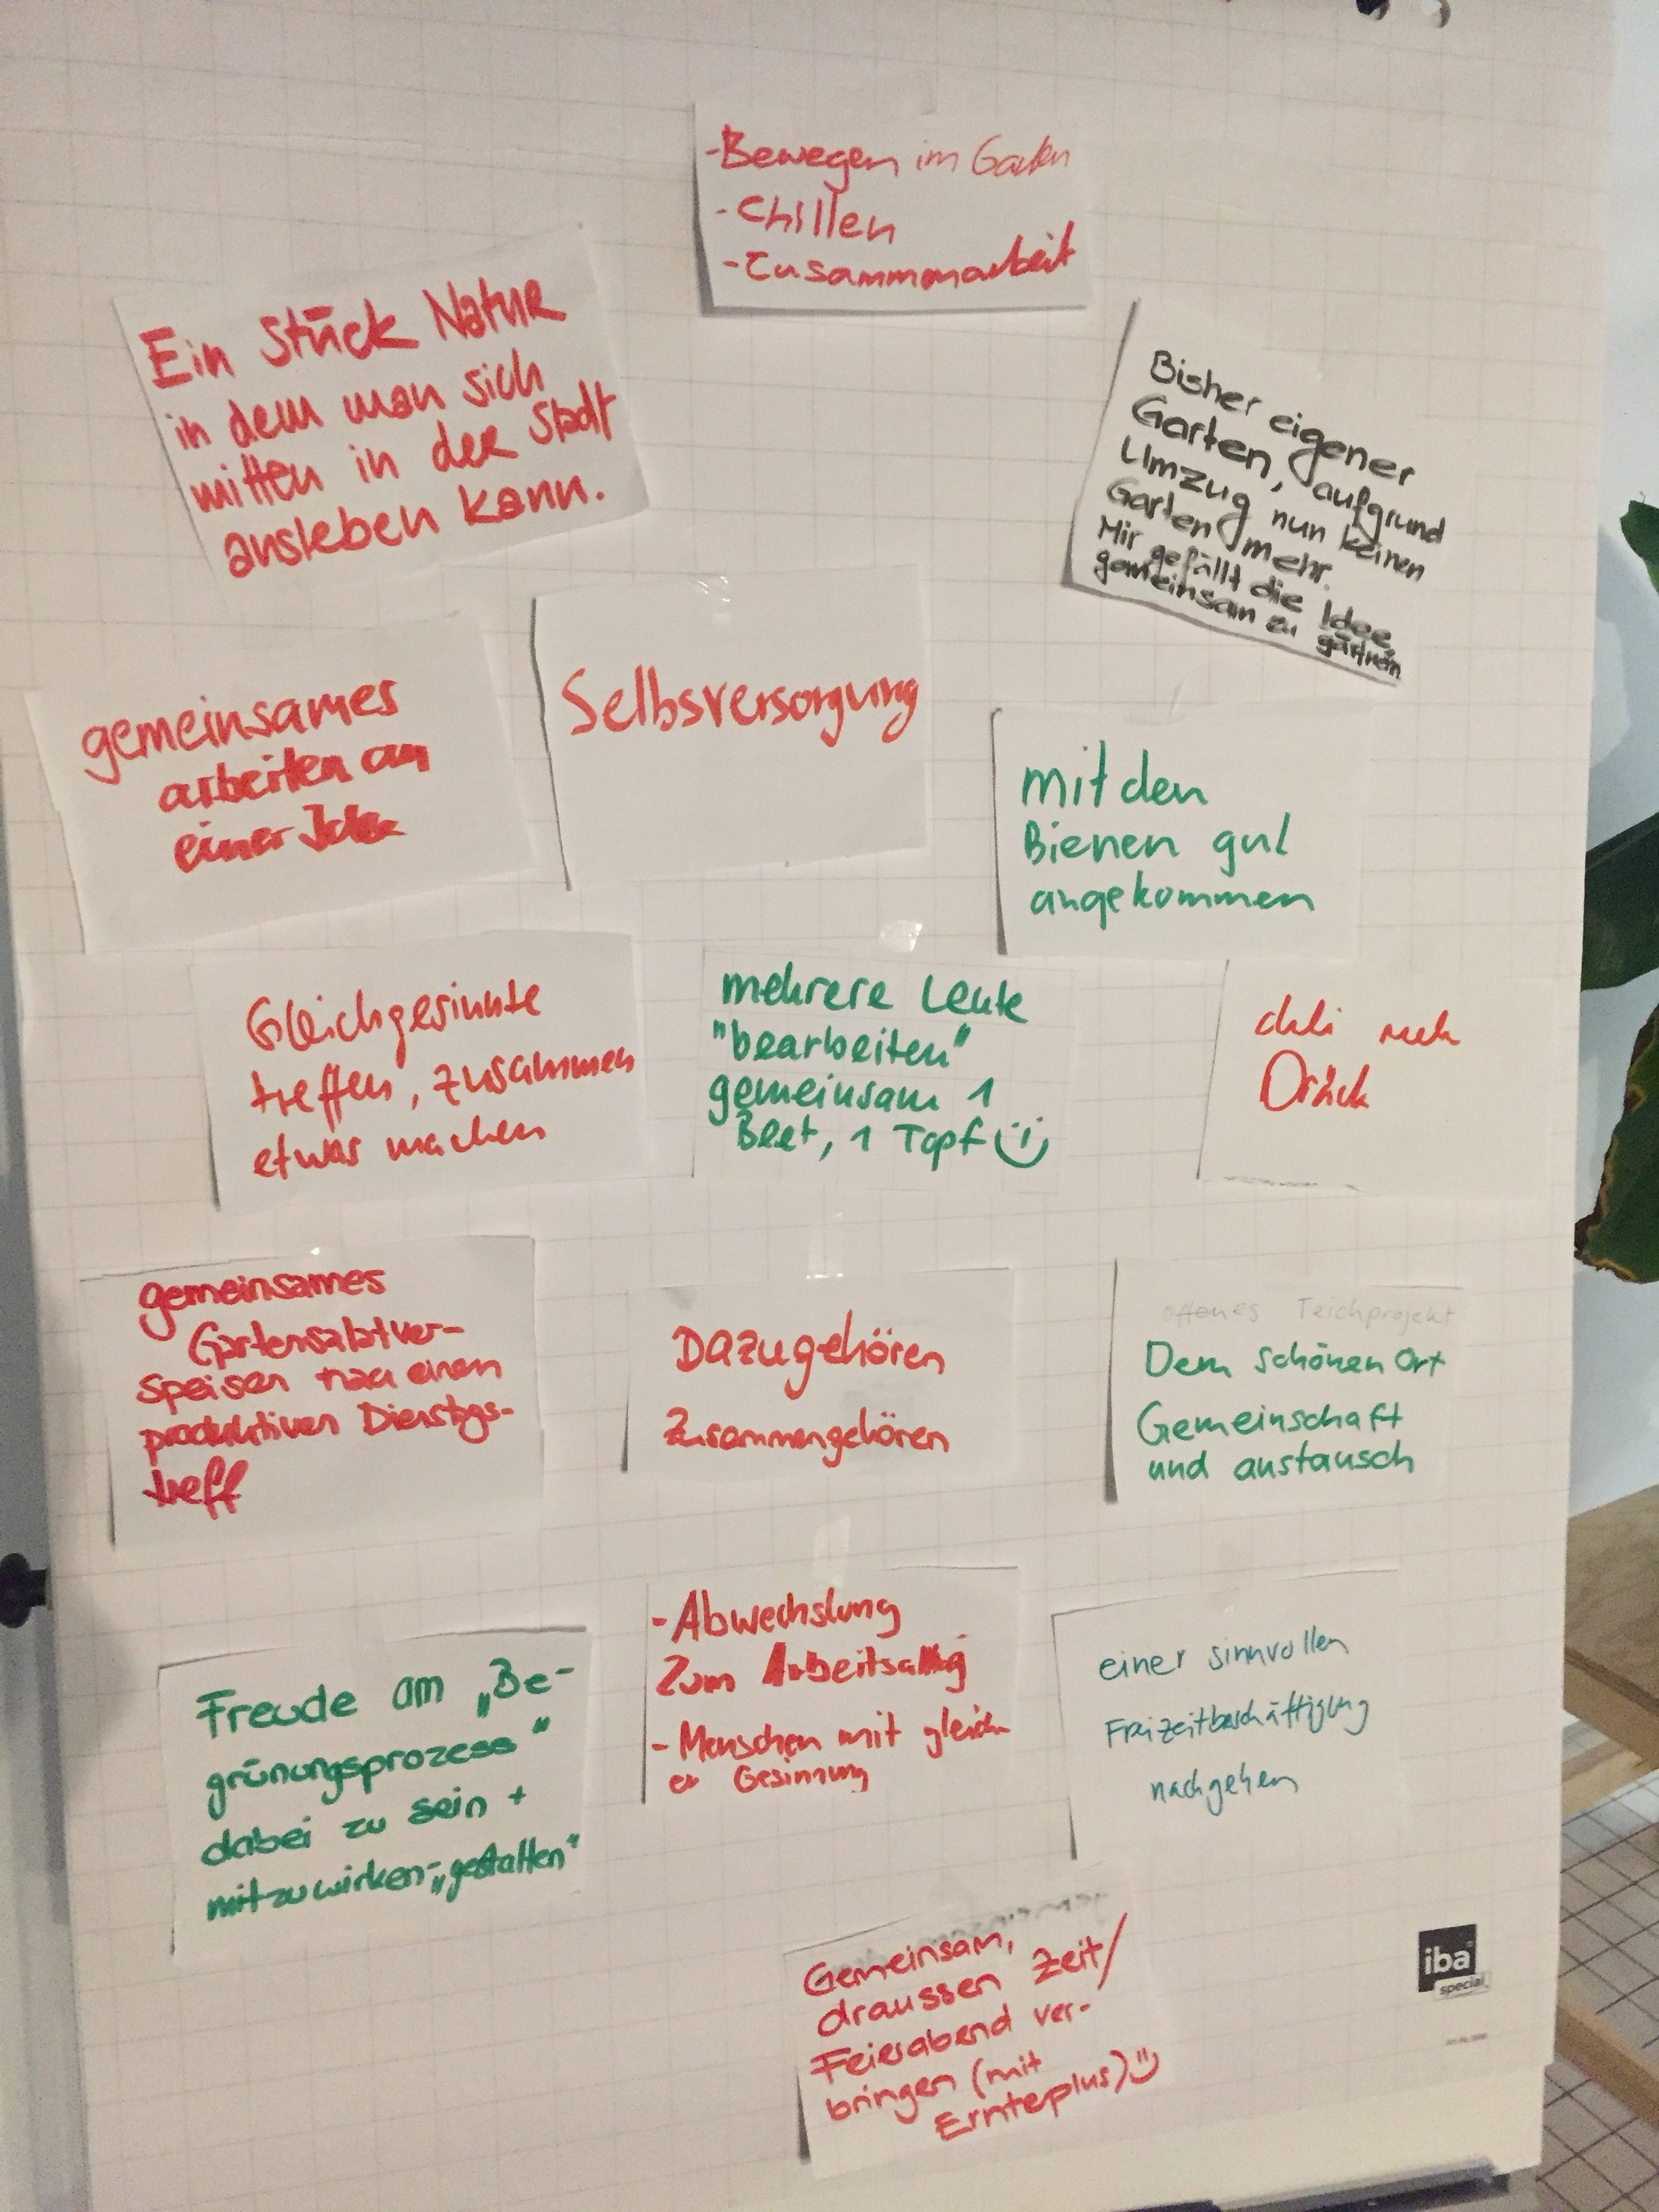 -Bewegen im Garten
-Chillen
-Zusammenarbeit
Ein Stück Natur
in dem man sich
mitten in der Stadt
ausleben kann.
Bisher eigener
Garten, aufgrund
Umzug nun keinen
Garten mehr.
Mir gefällt die Idee,
gemeinsam zu gärtnern
gemeinsames
arbeiten an
einer Idee
Selbsversorgung
mit den
Bienen gut
angekommen
Gleichgesinnte
treffen, zusammen
etwas machen
mehrere Leute
"bearbeiten"
gemeinsam 1
Beet, 1 Topf
gemeinsames
Gartensalatver-
speisen nach einem
produktiven Dienstags-
treff
Dazugehören
Zusammengehören
offenes Teichprojekt
Dem schönen Ort
Gemeinschaft
und austausch
Freude am „Be-
grünungsprozess"
dabei zu sein +
mitzuwirken-„gestalten"
-Abwechslung
Zum Arbeitsalltag
-Menschen mit gleich
er Gesinnung
einer sinnvollen
Freizeitbeschäftigung
nachgehen
Gemeinsam,
draussen Zeit/
Feierabend ver-
bringen (mit
Ernteplus)
iba
special